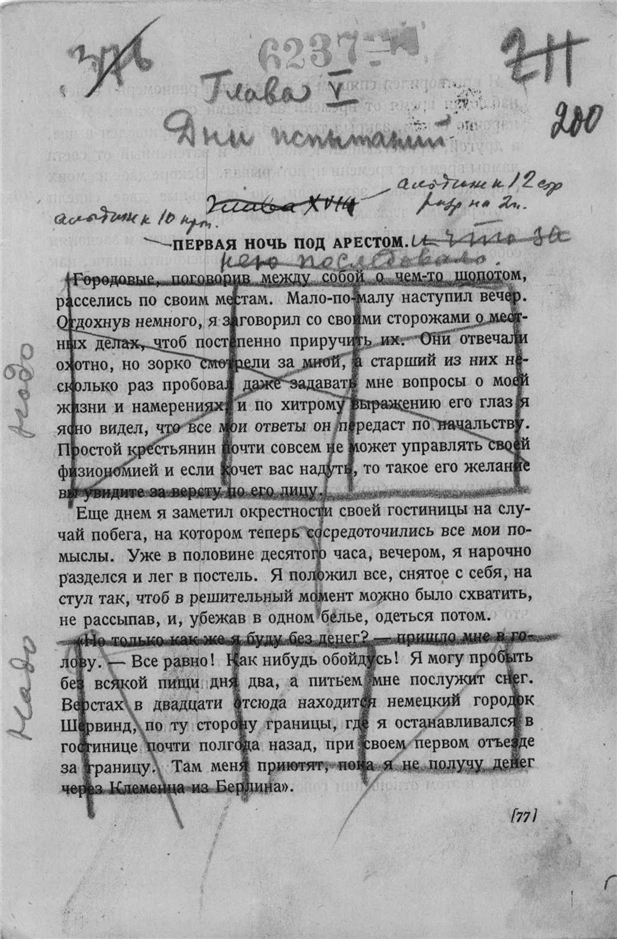 376
6237
211
200
Глава V
Дни испытаний
Глава XVIII
альдине к 10 п.
альдине к 12 стр
разр на 2 п.
ПЕРВАЯ НОЧЬ ПОД АРЕСТОМ. и что за
нею последовало.
Городовые, поговорив между собой о чем-то шопотом,
расселись по своим местам. Мало-по-малу наступил вечер.
Отдохнув немного, я заговорил со своими сторожами о мест-
ных делах, чтоб постепенно приручить их. Они отвечали
охотно, но зорко смотрели за мной, а старший из них не-
сколько раз пробовал даже задавать мне вопросы о моей
жизни и намерениях, и по хитрому выражению его глаз я
ясно видел, что все мои ответы он передаст по начальству.
Простой крестьянин почти совсем не может управлять своей
физиономией и если хочет вас надуть, то такое его желание
вы увидите за версту по его лицу.
Надо
Еще днем я заметил окрестности своей гостиницы на слу-
чай побега, на котором теперь сосредоточились все мои по-
мыслы. Уже в половине десятого часа, вечером, я нарочно
разделся и лег в постель. Я положил все, снятое с себя, на
стул так, чтоб в решительный момент можно было схватить,
не рассыпав, и, убежав в одном белье, одеться потом.
«Но только как же я буду без денег? — пришло мне в го-
лову. — Все равно! Как нибудь обойдусь! Я могу пробыть
без всякой пищи дня два, а питьем мне послужит снег.
Верстах в двадцати отсюда находится немецкий городок
Шервинд, по ту сторону границы, где я останавливался в
гостинице почти полгода назад, при своем первом отъезде
за границу. Там меня приютят, пока я не получу денег
через Клеменца из Берлина».
Надо
[77]